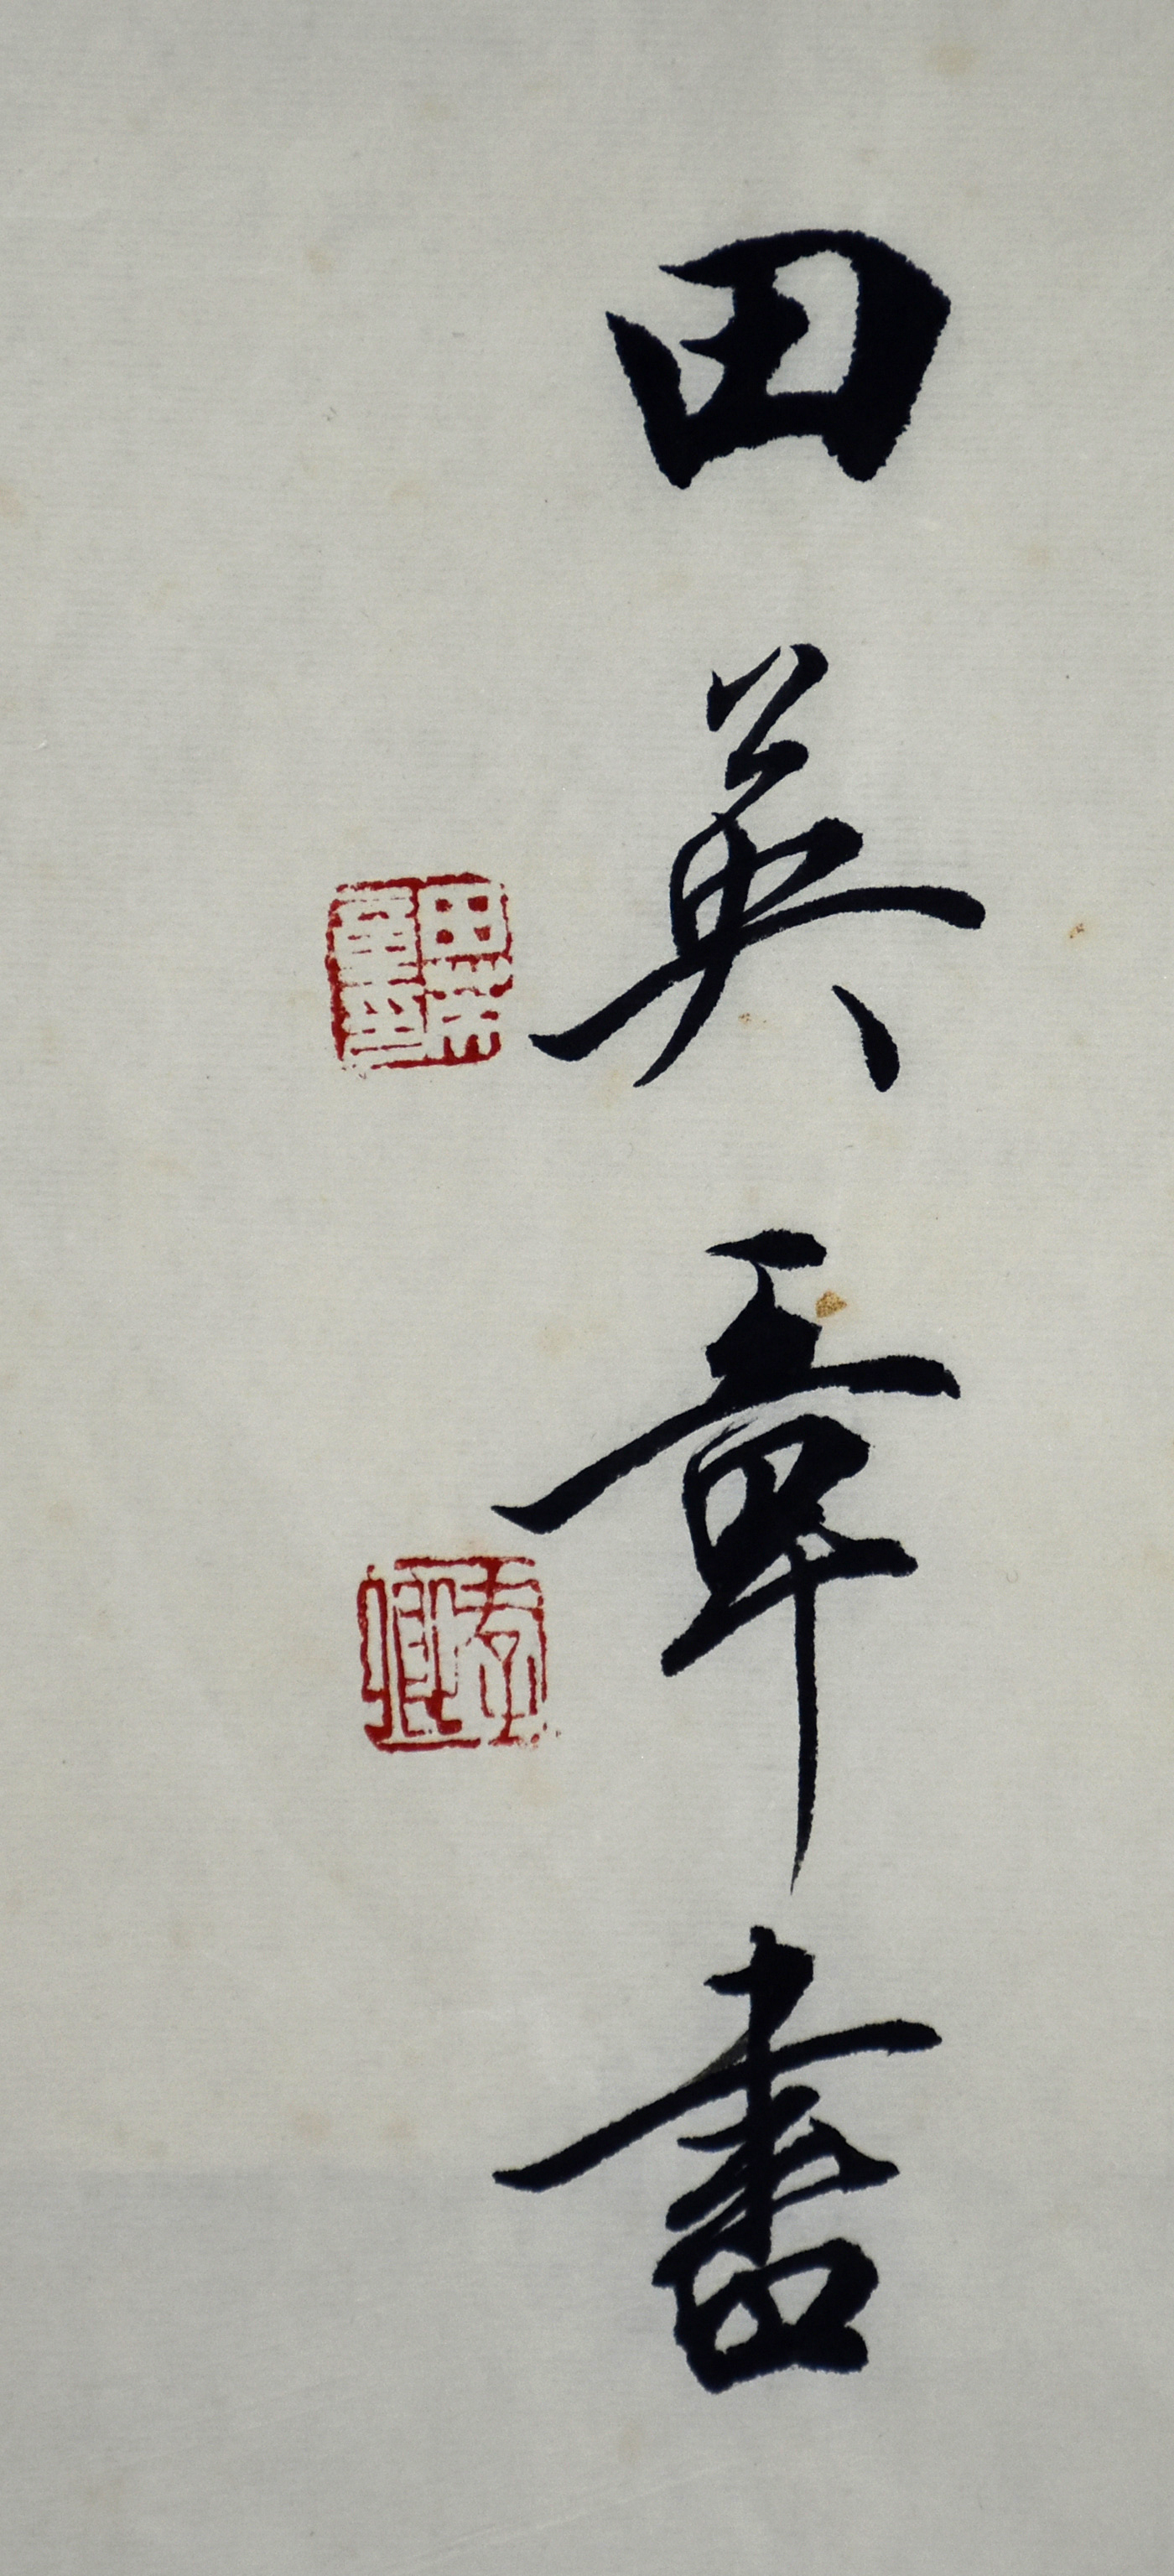 田英章書
田英章印
存卿